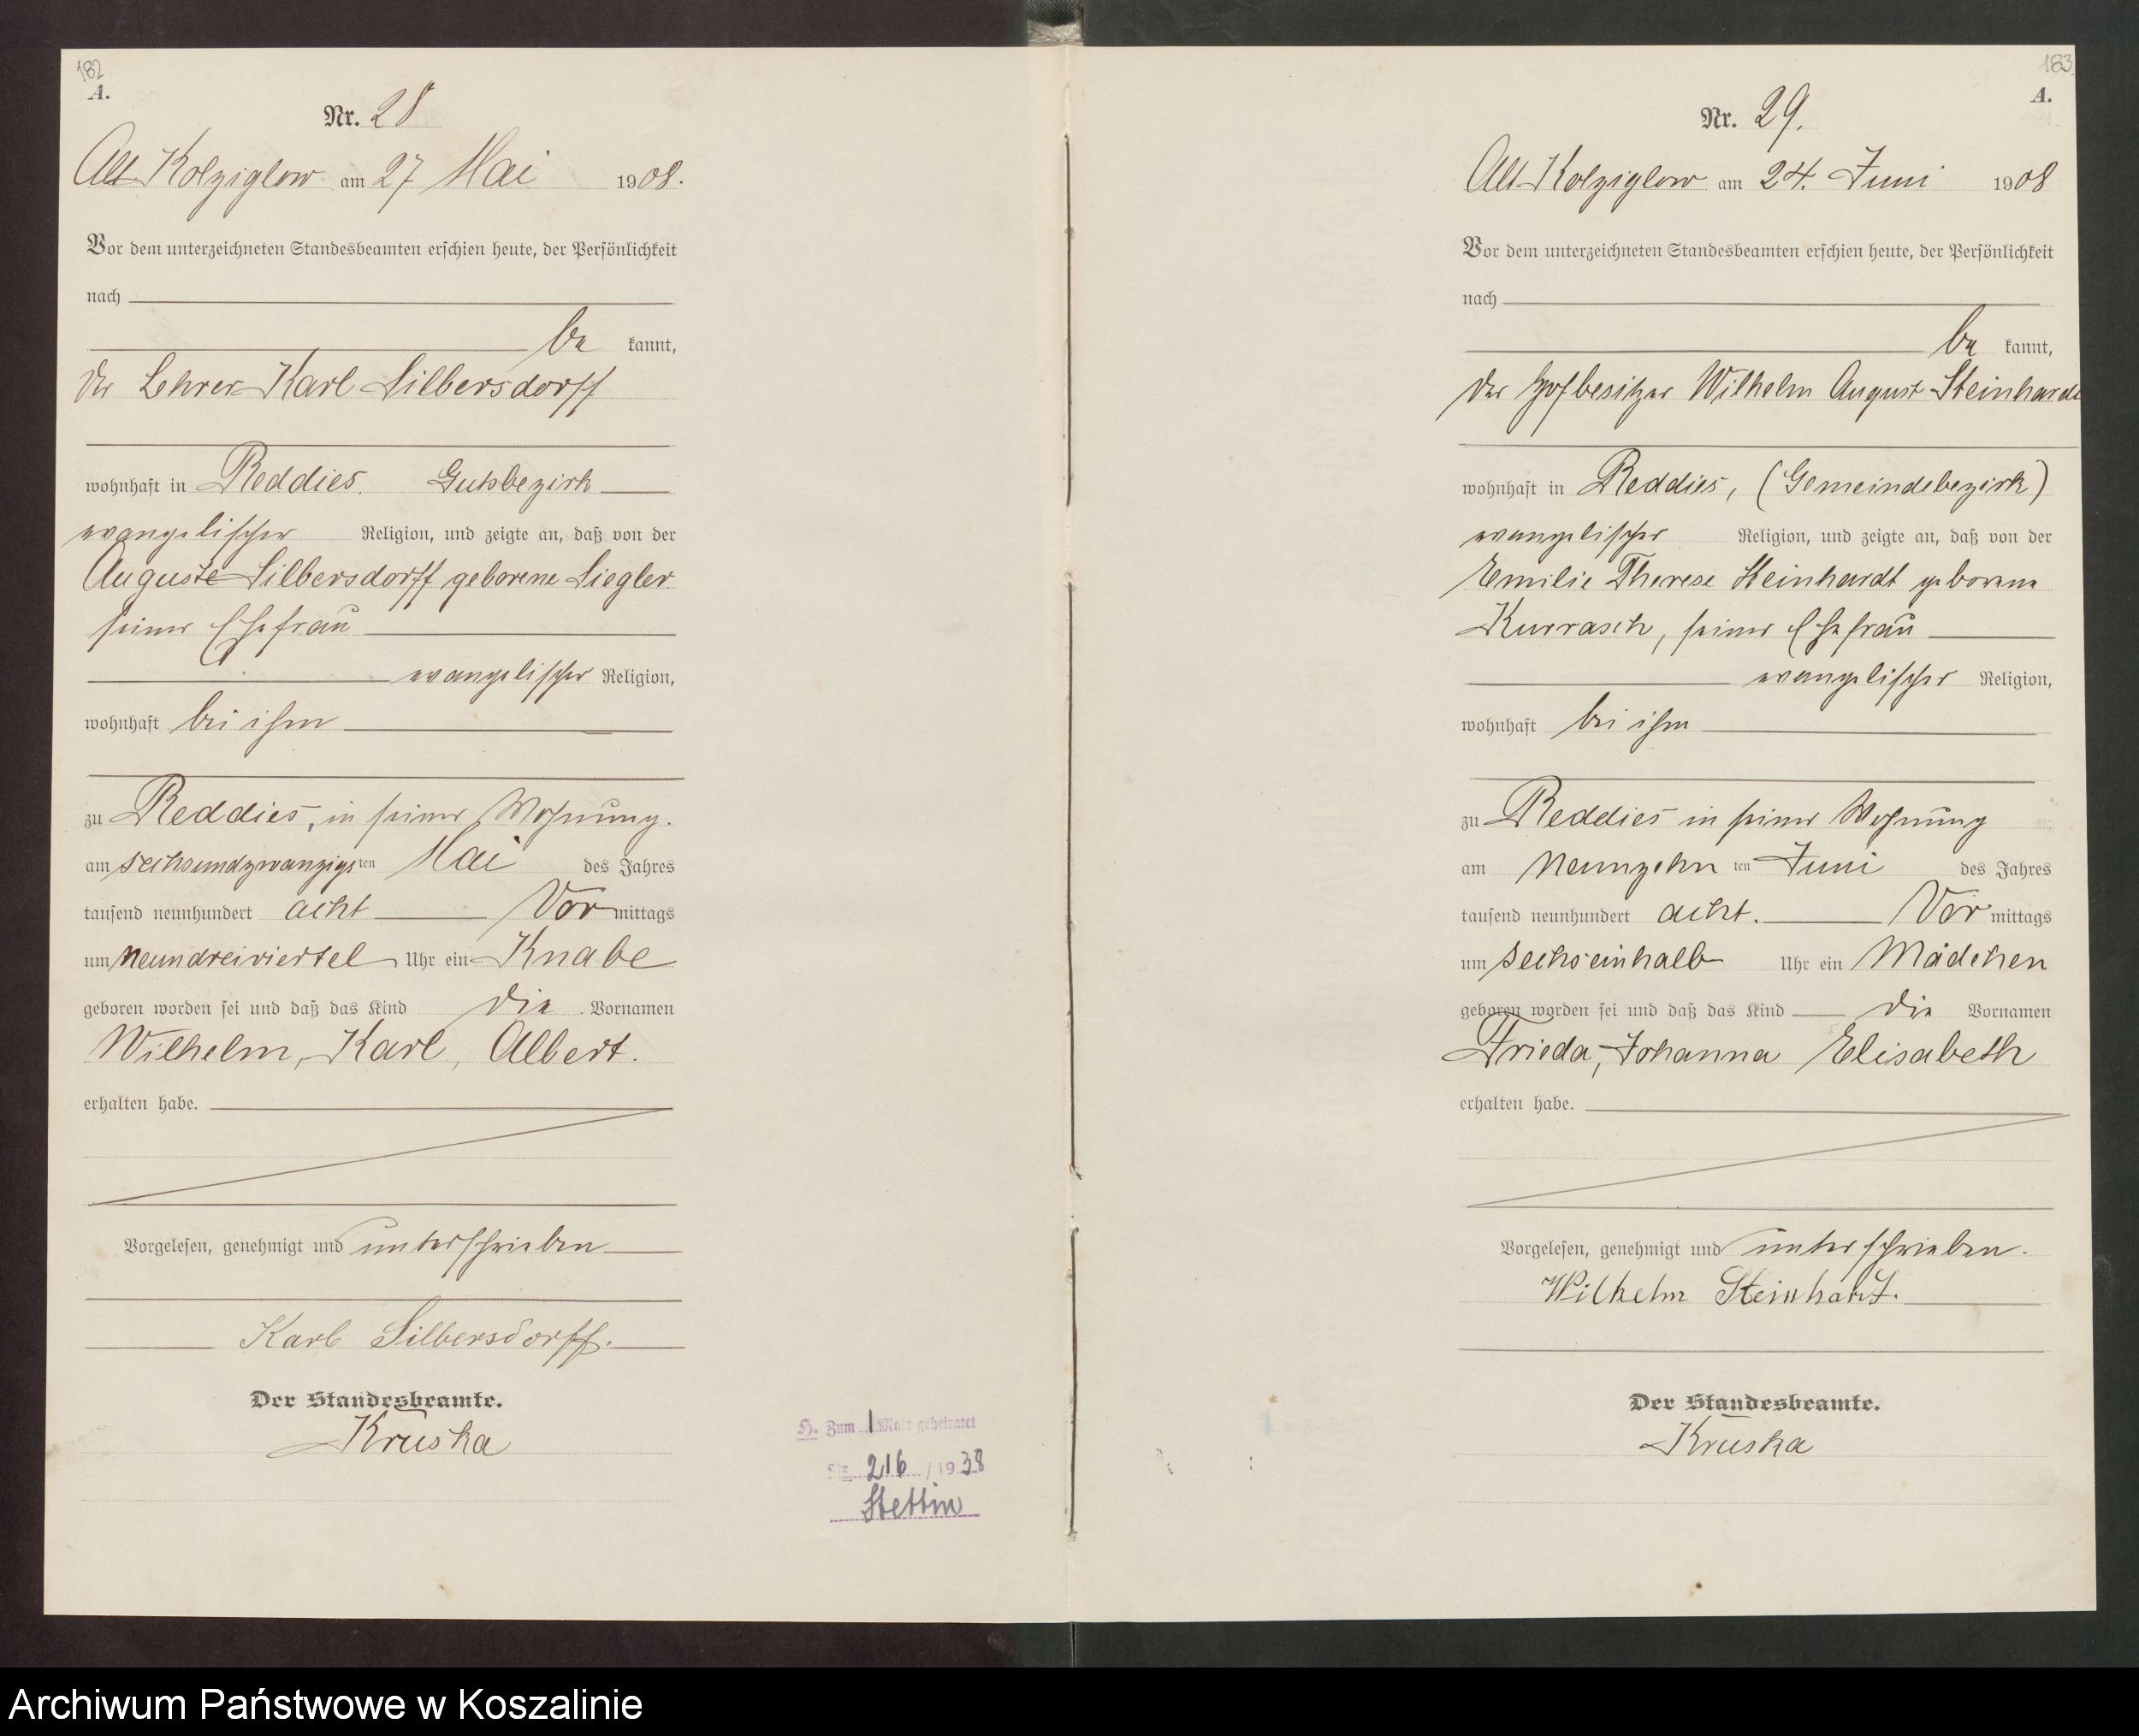 182
A.
Nr. 28
Alt Kolziglow am 27 Mai 1908.
Vor dem unterzeichneten Standesbeamten erschien heute, der Persönlichkeit
nach
be kannt,
der Lehrer Karl Silbersdorff
wohnhaft in Reddies. Gutsbezirk
evangelischer Religion, und zeigte an, daß von der
Auguste Silbersdorff geborene Siegler
seiner Ehefrau
evangelischer Religion,
wohnhaft bei ihm
zu Reddies, in seiner Wohnung.
am sechsundzwanzigsten Mai des Jahres
tausend neunhundert acht Vor mittags
um neundreiviertel Uhr ein Knabe
geboren worden sei und daß das Kind die Vornamen
Wilhelm, Karl, Albert.
erhalten habe.
Vorgelesen, genehmigt und unterschrieben
Karl Silbersdorff.
Der Standesbeamte.
Kruska
H. Zum 1 Male geheiratet
Nr. 216 / 1938
Stettin
183
A.
Nr. 29.
Alt Kolziglow am 24. Juni 1908
Vor dem unterzeichneten Standesbeamten erschien heute, der Persönlichkeit
nach
be kannt,
der Hofbesitzer Wilhelm August Steinhardt
wohnhaft in Reddies, (Gemeindebezirk)
evangelischer Religion, und zeigte an, daß von der
Emilie Therese Steinhardt geborene
Kurrasch, seiner Ehefrau
evangelischer Religion,
wohnhaft bei ihm
zu Reddies in seiner Wohnung
am neunzehn ten Juni des Jahres
tausend neunhundert acht. Vor mittags
um sechseinhalb Uhr ein Mädchen
geboren worden sei und daß das Kind die Vornamen
Frieda, Johanna Elisabeth
erhalten habe.
Vorgelesen, genehmigt und unterschrieben.
Wilhelm Steinhardt.
Der Standesbeamte.
Kruska
Archiwum Państwowe w Koszalinie